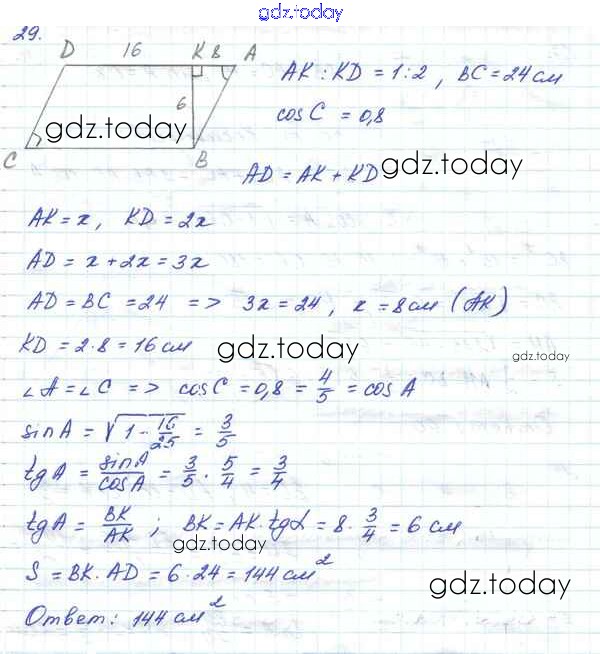 gdz.today
29.
D 16 K 8 A
6
C B
gdz.today
AK : KD = 1:2, BC = 24 см
cos C = 0,8
AD = AK + KD
gdz.today
AK = x, KD = 2x
AD = x + 2x = 3x
AD = BC = 24 => 3x = 24, x = 8 см (AK)
KD = 2·8 = 16 см
gdz.today
gdz.today
∠A = ∠C => cos C = 0,8 = 4/5 = cos A
sin A = √(1 - 16/25) = 3/5
tg A = sin A/cos A = 3/5 · 5/4 = 3/4
tg A = BK/AK ; BK = AK · tg α = 8 · 3/4 = 6 см
gdz.today
S = BK · AD = 6 · 24 = 144 см²
gdz.today
Ответ: 144 см²